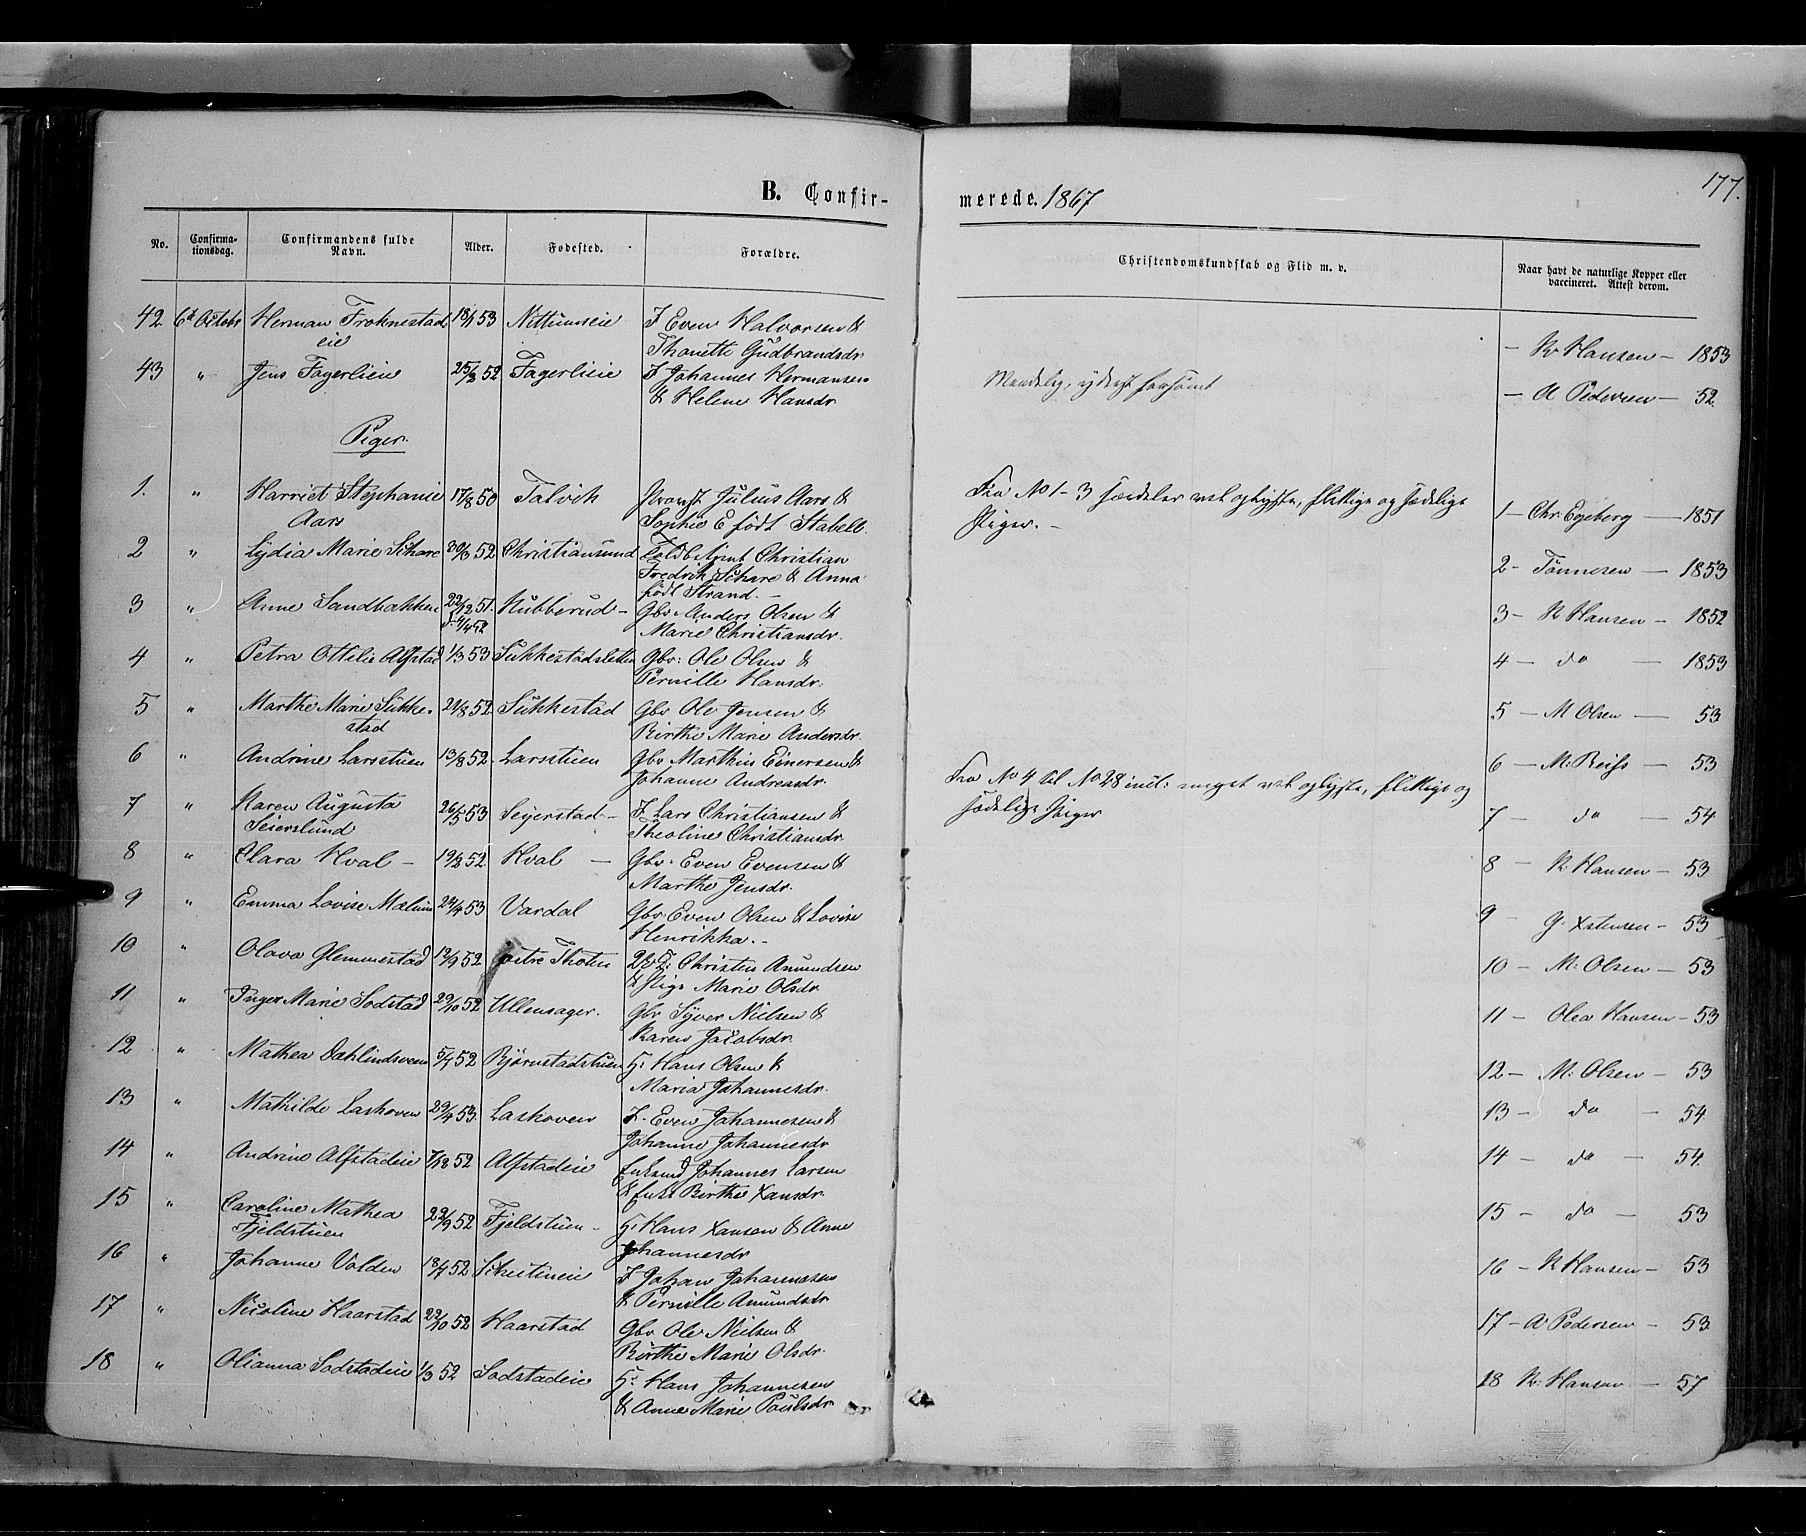 177.
B. Confir-
merede. 1867
No.
Confirma-
tionsdag.
Confirmandens fulde
Navn.
Alder.
Fødested.
Forældre.
Christendomskundskab og Flid m. v.
Naar havt de naturlige Kopper eller
vaccineret. Attest derom.
42 6te Octobr Herman Froknestad 18/1 53 Nittumseie I Even Halvorsen &
eie Thonette Gudbrandsdr
— K Hansen — 1853
43 " Jens Fagerlieie 25/3 52 Fagerlieie I Johannes Hermansen
& Helene Hansdr
Maadelig, yderst forsømt
— A Pedersen — 52.
Piger.
1. " Harriet Stephanie 17/8 50 Talvik Julius Aars &
Aars Sophie E født Stabell
Fra No 1-3 særdeles vel oplyste, flittige og sædelige
Piger. —
1 — Chr. Egeberg — 1851
2 " Lydia Marie Schare 30/3 52 Christiansund Toldb Christian
Fredrik Schare & Anna
født Strand. —
2 — Tønnesen — 1853
3 " Anne Sandbakken 22/12 51. Kubberud — Gbr. Anders Olsen &
d. 4/4 52 Marie Christiansdr.
3 — K Hansen — 1852
4 " Petra Ottilie Alfstad 1/3 53 Sukkestadsletten Gbr: Ole Olsen &
Pernille Hansdr:
4 — do — 1853
5 " Marthe Marie Sukke- 21/8 52. Sukkestad Gbr Ole Jensen &
stad Birthe Marie Andersdr.
5 — M Olsen — 53
6 " Andrine Larsstuen 13/8 52. Larsstuen Gbr Marthin Einersen &
Johanne Andreasdr.
6 — M. Reiss — 53
Fra No 4 til No 28 incl: meget vel oplyste, flittige og
sædelige Piger
7 " Karen Augusta 26/5 53 Seyerstad — I Lars Christiansen &
Seierslund Theoline Christiansdr
7 — do — 54
8 " Clara Hval — 19/2 52. Hval — Gbr. Even Evensen &
Marthe Jensdr.
8 — K Hansen — 53
9 " Emma Lovise Mælum 24/4 53 Vardal Gbr. Even Olsen & Lovise
Henrikka. —
9 — G. Xstensen — 53
10 " Olava Glemmestad 12/9 52 østre Thoten Christen Amundsen
& Pige Marie Olsdr
10 — M: Olsen — 53
11 " Inger Marie Sodstad 29/10 52 Ullensager. Gbr Syver Nielsen &
Karen Jacobsdr
11 — Olea Hansen — 53
12 " Mathea Dahlindsveen 5/7 52 Bjørnstadstuen H: Hans Olsen &
Maria Johannesdr.
12 — M: Olsen — 53
13 " Mathilde Laskoven 29/4 53 Laskoven I. Even Johannesen &
Johanne Johannesdr
13 — do — 54
14 " Andrine Alfstadeie 7/12 52 Alfstadeie Enkemd Johannes Larsen
& Enke Birthe Xansdr.
14 — do — 54.
15 " Caroline Mathea 22/9 52 Fjeldstuen — H. Hans Xansen & Anne
Fjeldstuen Johannesdr
15 — do — 53
16 " Johanne Volden 18/7 52 I Johan Johannesen
& Pernille Amundsdr
16 — K Hansen — 53
17 " Nicoline Haarstad 22/10 52 Haarstad Gbr Ole Nielsen &
Birthe Marie Olsdr.
17 — A Pedersen — 53
18 " Olianna Sodstadeie 1/3 52 Sodstadeie H. Hans Johannesen
& Anne Marie Poulsdr
18 K: Hansen — 57